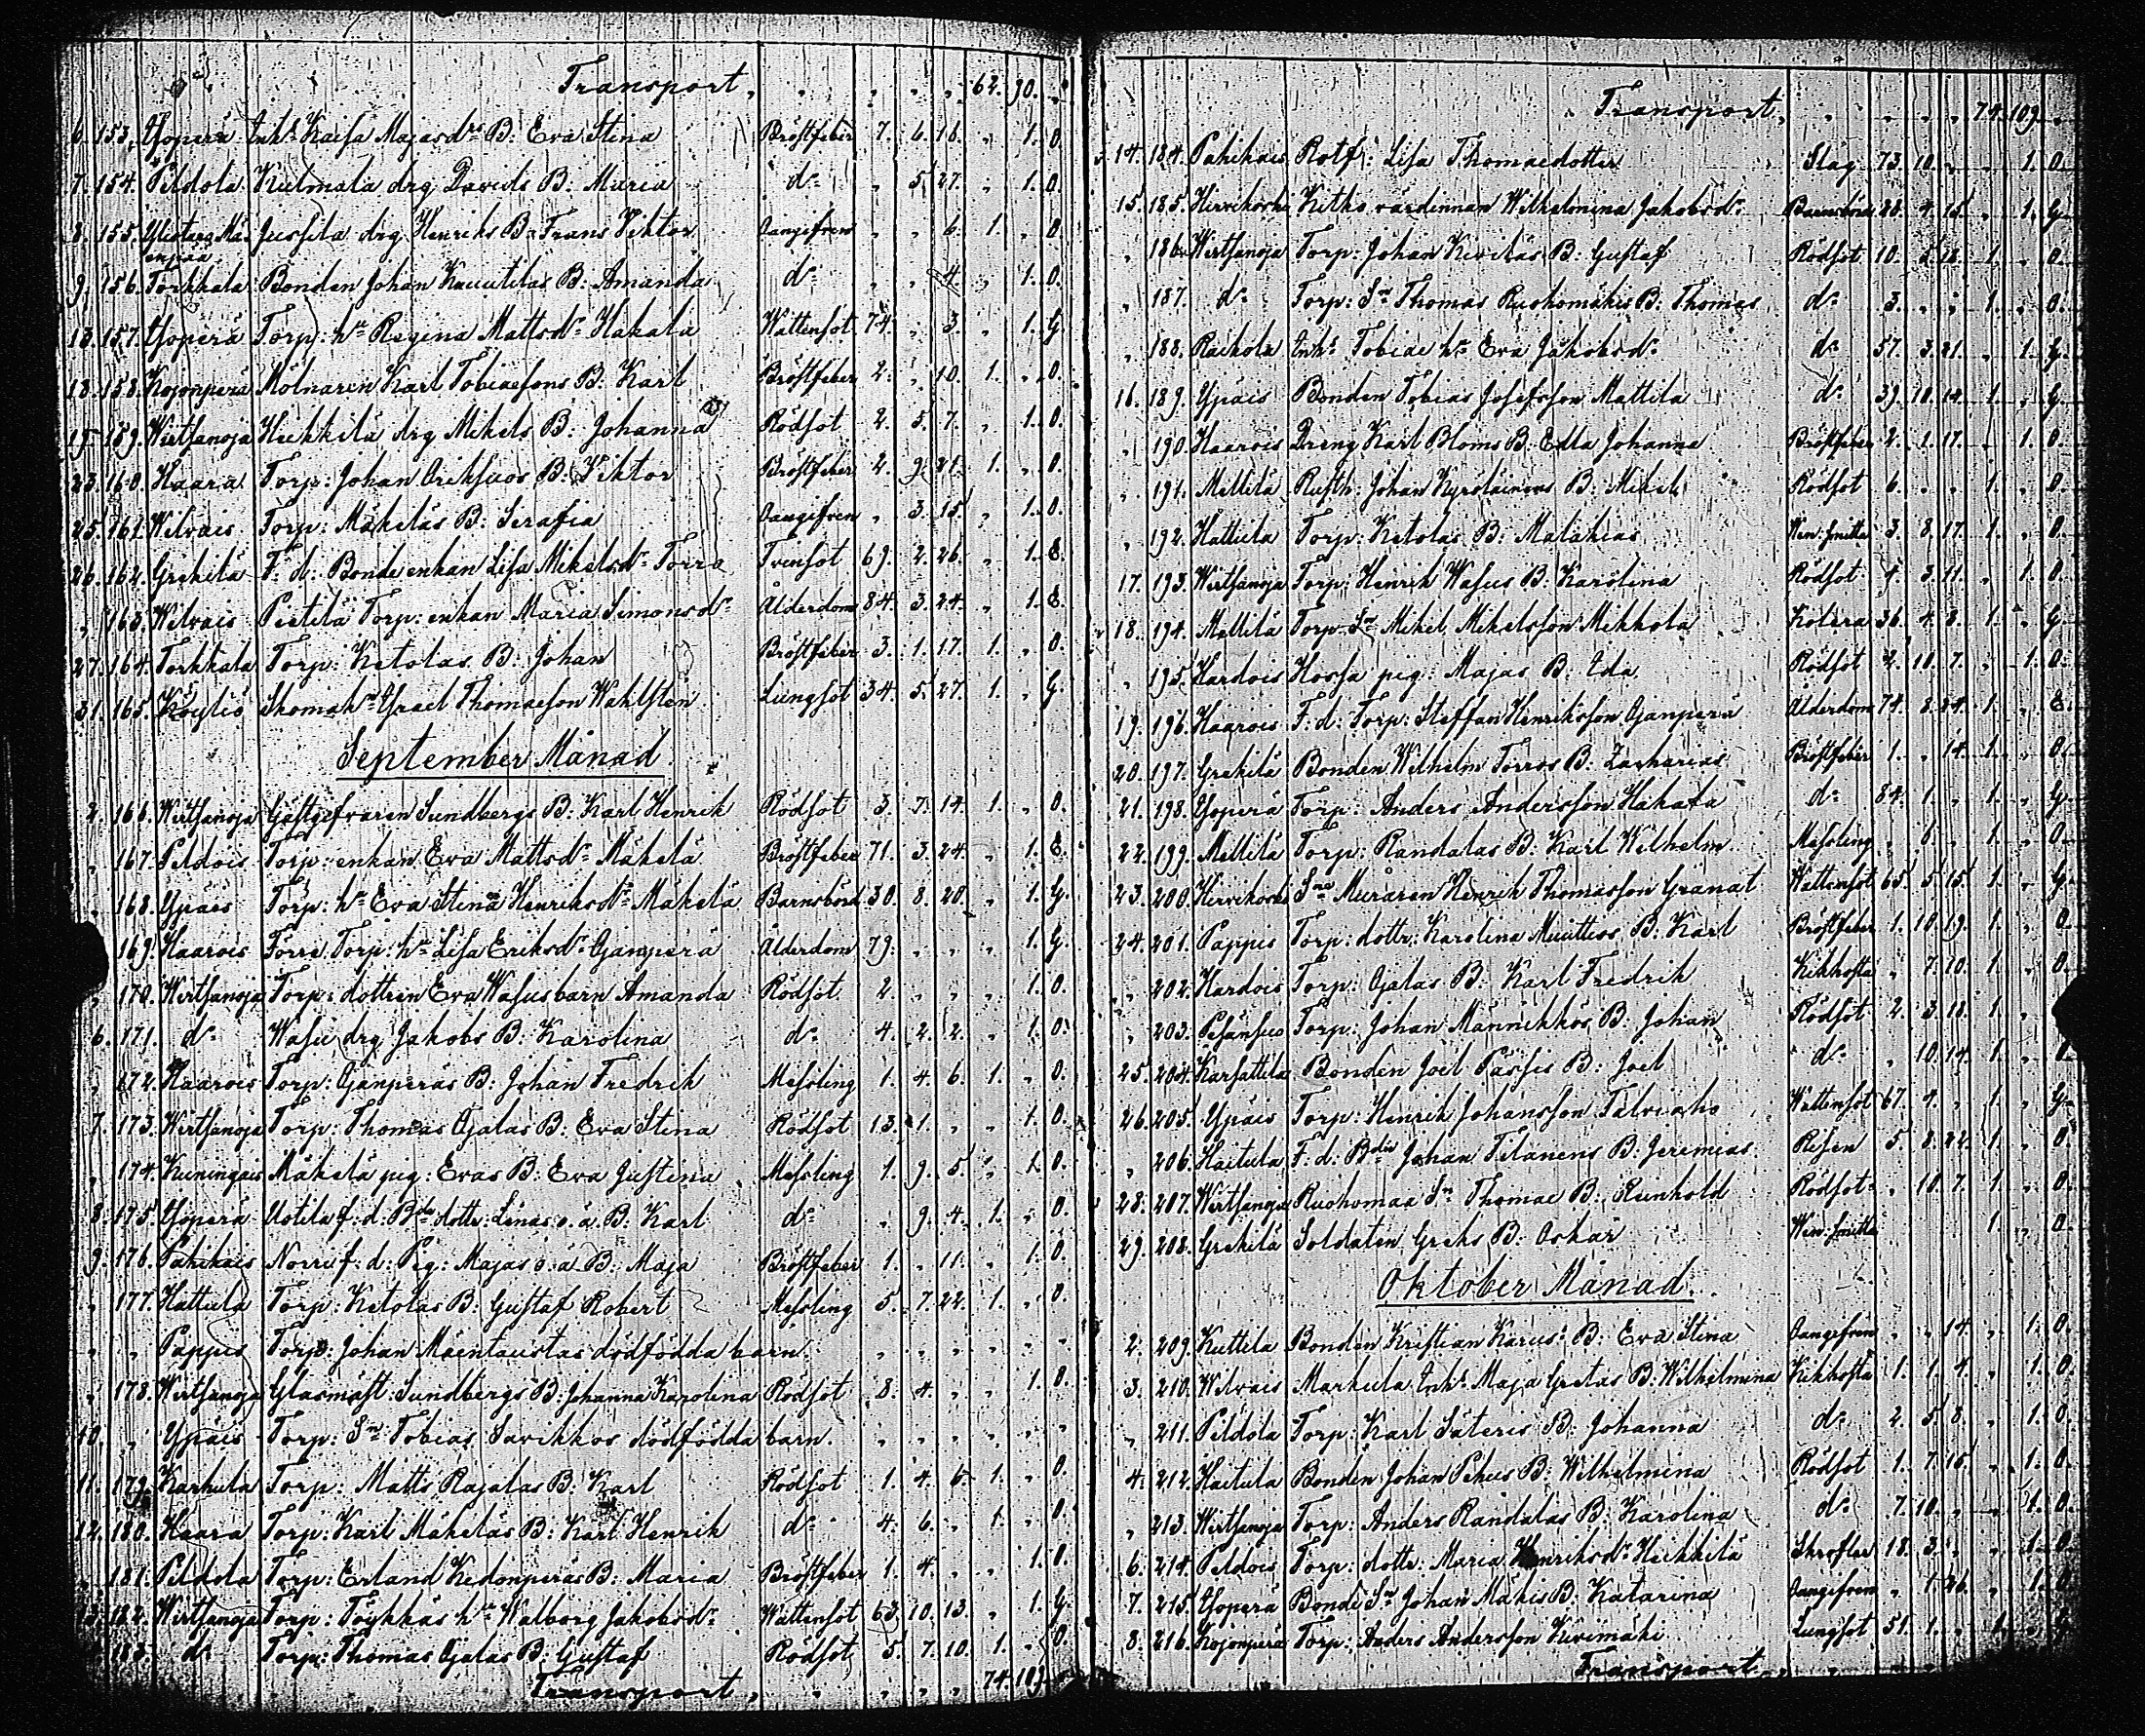 Transport „ „ „ „ „ 62. 90. „
6. 153. Yöperä Inh: Kaisa Majasdrs B: Eva Stina Bröstfeber 7. 6. 18. „ 1. O.
7. 154. Peldola Kulmala drg Davids B: Maria do „ 5. 27. „ 1. O.
8. 155. Ylistaro Mäenpää Jussila drg Henriks B: Frans Viktor Oangifven „ „ 6. 1. „ O
9. 156. Torkkala Bonden Johan Kauutilas B: Amanda do „ „ 4. „ 1. O.
13. 157. Yöperä Torp: hu Regina Mattsdr Hakala Wattensot 74. „ 3. „ 1. G
18. 158. Kojonperä Mölnaren Karl Tobiaesons B: Karl Bröstfeber 2. „ 10. 1. „ O.
19. 159. Wirtsanoja Heikkilä drg Mikels B: Johanna Rödsot 2. 5. 7. „ 1. O.
23. 160. Haara Torp: Johan Oriksuos B: Viktor Bröstfeber 2. 9. 21. 1. „ O.
25. 161. Wilvais Torp: Mäkeläs B: Serafia Oangifven „ 3. 15. „ 1. O.
26. 162. Grekilä F. d. Bonde enkan Lisa Mikelsdr Torra Tvensot 69. 2. 26. „ 1. E.
„ 163. Wilvais Pietilä Torp: enkan Maria Simonsdr Ålderdom 84. 3. 24. „ 1. E.
27. 164. Torkkala Torp: Ketolas B: Johan Bröstfeber 3. 1. 17. 1. „ O.
31. 165. Köyliö Skomakn Israel Thomaeson Wahlsten Lungsot 34. 5. 27. 1. „ G.
September Månad.
2. 166. Wirtsanoja Gästgifvaren Sundbergs B: Karl Henrik Rödsot 3. 7. 14. 1. „ O.
„ 167. Peldois Torp: enkan Eva Mattsdr Mäkelä Bröstfeber 71. 3. 24. „ 1. E.
„ 168. Ypäis Torp: hu Eva Stina Henriksdr Mäkelä Barnsbörd 30. 8. 20. „ 1. G.
„ 169. Haarois Förre Torp: hu Lisa Eriksdr Ojanperä Ålderdom 79. „ „ „ 1. G.
„ 170. Wirtsanoja Torp: dottren Eva Wasus barn Amanda Rödsot 2. „ „ „ 1. O.
6. 171. do Wasu drg Jakobs B: Karolina do 4. 2. 2. „ 1. O.
„ 172. Haarois Torp: Ojanperäs B: Johan Fredrik Messling 1. 4. 6. 1. „ O.
7. 173. Wirtsanoja Torp: Thomas Ojalas B: Eva Stina Rödsot 13. 1. „ „ 1. O.
„ 174. Kuningais Mäkelä pig: Evas B: Eva Justina Messling 1. 9. 5. „ 1. O.
8. 175. Yöperä Uotila f: d: Bde dottr: Linas o. ä. B: Karl do „ 9. 4. 1. „ O.
9. 176. Pahikais Norri f: d: Pig: Majas o. ä. B: Maja Bröstfeber 1. „ 11. „ 1. O.
„ 177. Hattula Torp: Ketolas B: Gustaf Robert Messling 5. 7. 22. 1. „ O.
„ „ Pappis Torp: Johan Mäentaustas dödfödda barn. „ „ „ „ „ „
„ 178. Wirtsanoja Glasmäst: Sundbergs B: Johanna Karolina Rödsot 8. 4. „ „ 1. O.
10. „ Ypäis Torp: Sn Tobias Savikkos dödfödda barn. „ „ „ „ „ „
11. 179. Karhula Torp: Matts Rajalas B: Karl Rödsot 1. 4. 6. 1. „ O.
12. 180. Haara Torp: Karl Mäkeläs B: Karl Henrik do 4. 6. „ 1. „ O.
„ 181. Peldola Torp: Erland Kedonperäs B: Maria Bröstfeber 1. 4. „ „ 1. O.
13. 182. Wirtsanoja Torp: Töykkäs hu Walborg Jakobsdr Wattensot 63. 10. 13. „ 1. G.
„ 183. do Torp: Thomas Ojalas B: Gustaf Rödsot 5. 7. 10. 1. „ O.
Transport „ „ „ „ „ 74. 109. „
Transport „ „ „ „ „ 74. 109. „
14. 184. Pahikais Rotf: Lisa Thomaedotter Slag 73. 10. „ „ 1. O.
15. 185. Hirvikoski Kitko värdinnan Wilhelmina Jakobsdr Barnsbörd 28. 4. 15. „ 1. G.
„ 186. Wirtsanoja Torp: Johan Kiviläs B: Gustaf Rödsot 10. 5. 18. 1. „ O.
„ 187. do Torp: Sn Thomas Ruohomäkis B: Thomas do 3. „ „ 1. „ O.
„ 188. Raikola Inhs Tobiae hu Eva Jakobsdr do 57. 3. 21. „ 1. G.
16. 189. Ypäis Bonden Tobias Josefsson Mattila do 39. 10. 14. 1. „ G.
„ 190. Haarois Dreng Karl Bloms B: Edla Johanna Bröstfeber 2. 1. 17. „ 1. O.
„ 191. Mellilä Rusth: Johan Kyröläinens B: Mikel Rödsot 6. „ „ 1. „ O.
„ 192. Hattula Torp: Ketolas B: Malakias Ven: smitta 3. 8. 17. 1. „ O.
17. 193. Wirtsanoja Torp: Henrik Wasus B: Karolina Rödsot 4. 3. 11. „ 1. O.
18. 194. Mellilä Torp: Sn Mikel Mikelsson Mikkola Kolera 36. 4. 8. 1. „ G.
„ 195. Hardois Hossa pig: Majas B: Ida Rödsot 2. 10. 7. „ 1. O.
19. 196. Haarois F: d: Torp: Steffan Henriksson Ojanperä Ålderdom 74. 8. 24. 1. „ E.
20. 197. Grekilä Bonden Wilhelm Torros B: Zacharias Bröstfeber 1. „ 14. 1. „ O.
21. 198. Yöperä Torp: Anders Andersson Hakala do 84. 1. „ 1. „ G.
22. 199. Mellilä Torp: Randalas B: Karl Wilhelm Messling „ 6. „ 1. „ O.
23. 200. Hirvikoski Sne Muraren Henrik Thomasson Granat Wattensot 65. 5. 15. 1. „ G
24. 201. Pappis Torp: dottr: Karolina Muuttios B: Karl Bröstfeber 1. 10. 19. 1. „ O
„ 202. Hardois Torp: Ojalas B: Karl Fredrik Kikhosta „ 7. 10. 1. „ O.
„ 203. Pesänsuo Torp: Johan Männikkös B: Johan Rödsot 2. 3. 18. 1. „
25. 204. Karsattila Bonden Joel Passis B: Joel do „ 10. 14. 1. „
26. 205. Ypäis Torp: Henrik Johansson Talviaho Wattensot 67. 4. „ 1. „ G.
„ 206. Haitula F: d: Bde Johan Tilanens B: Jeremias Risen 5. 8. 22. 1. „ O
28. 207. Wirtsanoja Ruohomaa Sn Thomae B: Reinhold Rödsot „ 10. 7. 1. „ O.
29. 208. Grekilä Soldaten Greks B: Oskar Ven: smitta 1. „ O.
Oktober Månad.
2. 209. Kuttila Bonden Kristian Karus: B: Eva Stina Oangifven „ „ 14. „ 1. O.
3. 210. Wilvais Markula Inhs Maja Gretas B: Wilhelmina Kikhosta 1. 1. 4. „ 1. O.
„ 211. Peldola Torp: Karl Säteris B: Johanna do 2. 5. 8. „ 1. O.
4. 212. Haitula Bonden Johan Pehus B: Wilhelmina Rödsot 1. 7. 15. „ 1. O.
„ 213. Wirtsanoja Torp: Anders Randalas B: Karolina do 7. 10. „ „ 1. O.
6. 214. Peldois Torp: dottr: Maria Henriksdr Heikkilä Skrofler 18. 3. „ „ 1. O.
7. 215. Yöperä Bonde Sn Johan Mäkis B: Katarina Oangifven „ 1. 26. „ 1. O.
8. 216. Kojonperä Torp: Anders Andersson Kivimäki Lungsot 51. 1. „ 1. „ G
Transport „ „ „